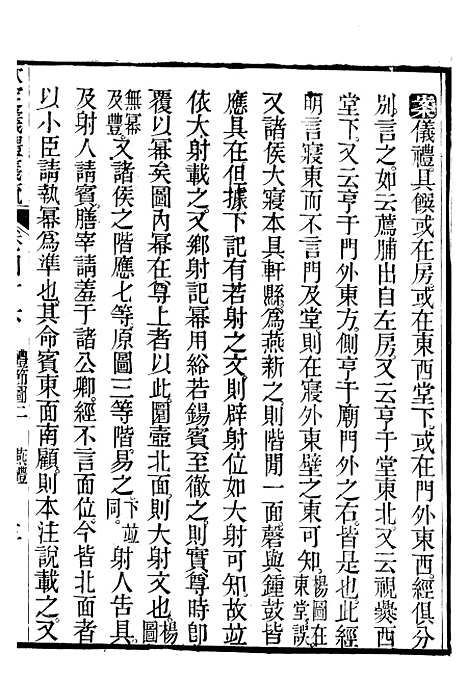 案儀禮具饌或在房或在東西堂下或在門外東西經俱分
別言之如云薦脯出自左房又云亨于堂東北又云視爨西
堂下又云亨于門外東方側亨于廟門外之右皆是也此經
明言寢東而不言門及堂則在寢外東壁之東可知楊圖在東堂誤
又諸侯大寢本具軒縣為燕新之則階間一面磬與鍾鼓皆
應具在但據下記有若射之文則辟射位如大射可知故竝
依大射載之又鄉射記冪用綌若錫賓至徹之則實尊時卽
覆以冪矣圖內冪在尊上者以此圜壺北面則大射文也楊圖
無冪及豐又諸侯之階應七等原圖三等階易之下竝同射人告具
及射人請賓膳宰請羞于諸公卿經不言面位今皆北面者
以小臣請執冪為準也其命賓東面南顧則本注說載之又
欽定儀禮義疏
卷四十六 禮節圖二 燕禮